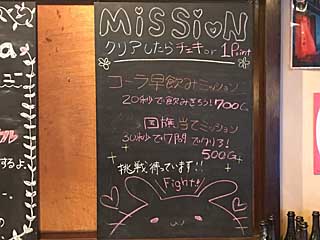 MiSSiON
クリアしたらチェキ or 1 Point
コーラ早飲みミッション
20秒で飲みきろう! 700G
国旗当てミッション
30秒で17問
500G
挑戦待っています!!
Fight!